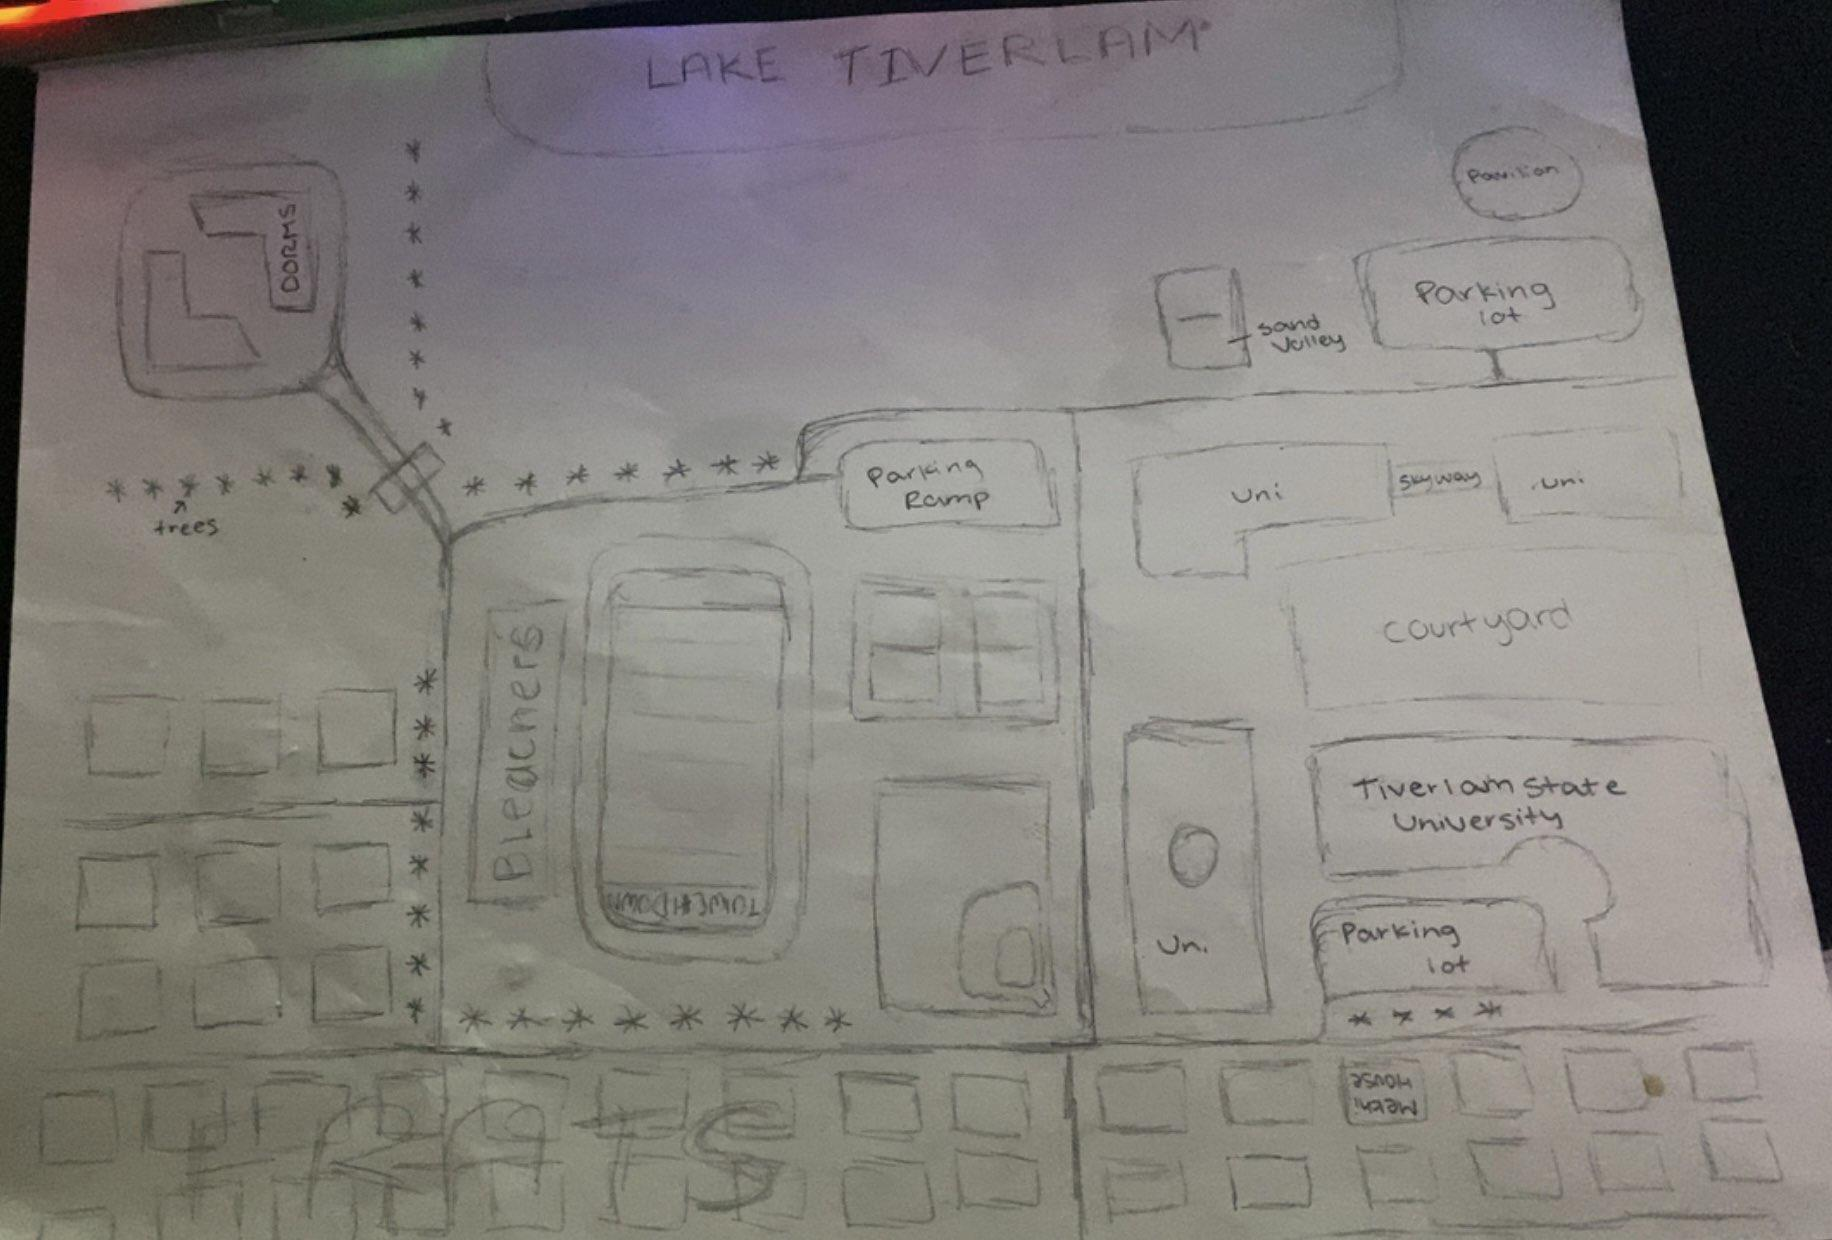 LAKE TIVERLAM
Pavilion
DORMS
Parking
lot
sand
Volley
trees
Parking
Ramp
uni
skyway
uni
courtyard
Bleachers
Tiverlam State
University
TOUCHDOWN
Uni
Parking
lot
Methi
House
FRATS